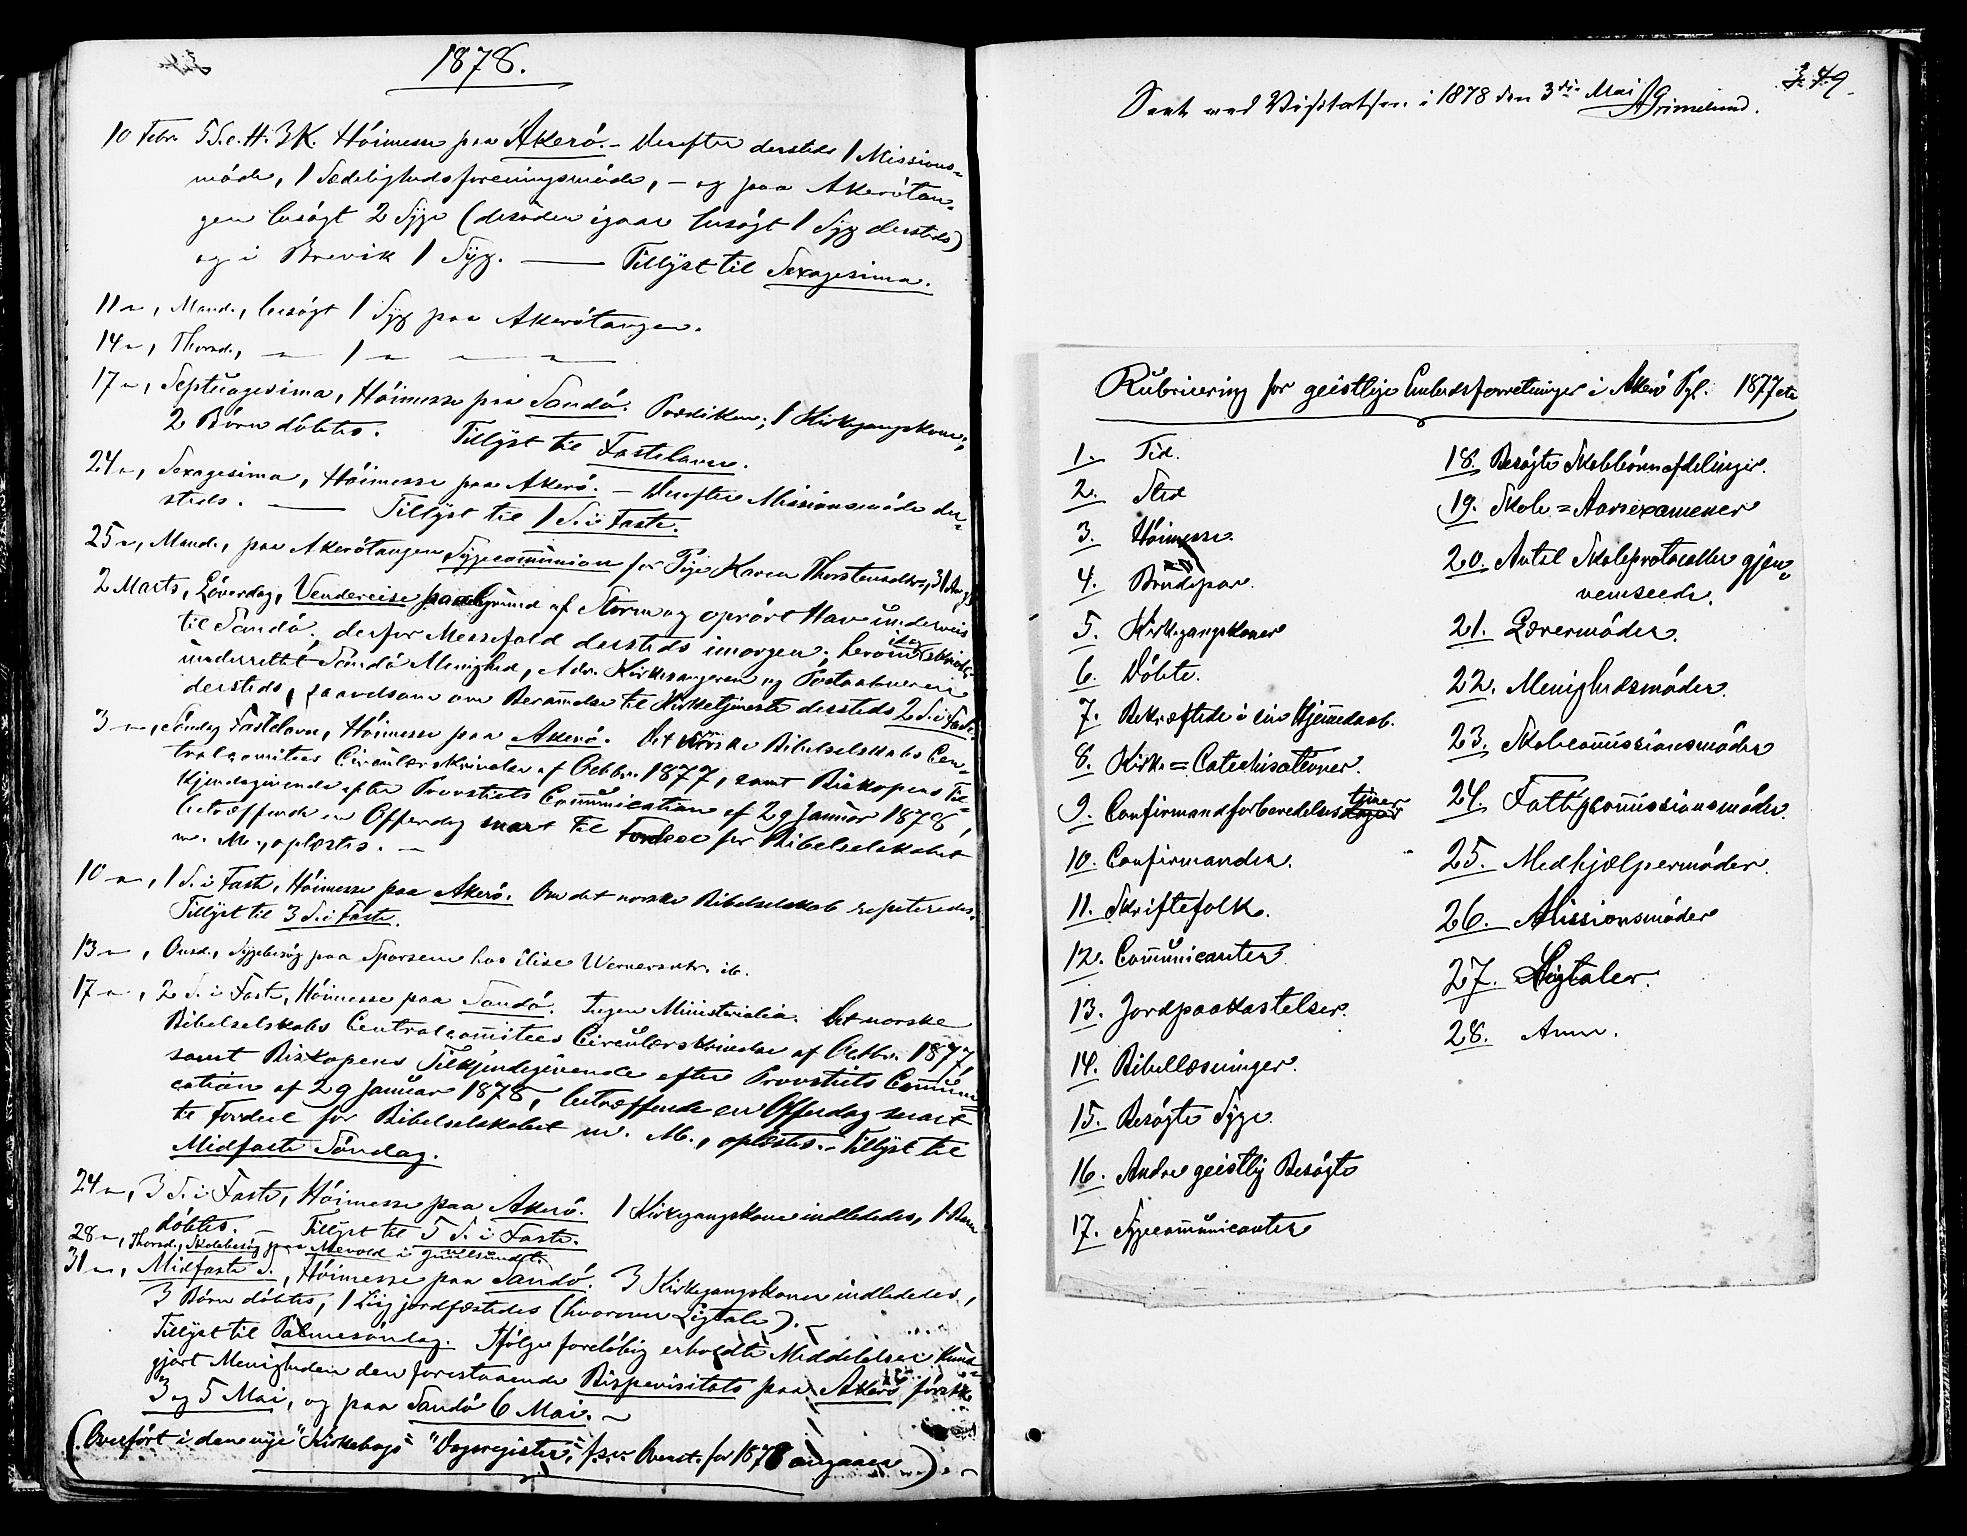 1878.
10 Febr. 5 S. e. H. 3 K. Höimesse paa Akerö. – Derefter dersteds 1 Missions-
möde, 1 Sædelighedsforeningsmöde, – og paa Akerötan-
gen besögt 2 Syge (desuden igaar besögt 1 Syg dersteds)
og i Brevik 1 Syg. — Tillyst til Sexagesima.
11 –, Mand., besögt 1 Syg paa Akerötangen.
14 –, Thorsd., – 1 – – –
17 –, Septuagesima, Höimesse paa Sandö. Prædiken; 1 Kirkegangskone;
2 Börn döbtes. Tillyst til Fastelavn.
24 –, Sexagesima, Höimesse paa Akerö. – Derefter Missionsmöde der-
steds. — Tillyst til 1 S. i Faste.
25 –, Mand., paa Akerötangen Sygecommunion for Pige Karen Thorstensdtr., 31 Aar
2 Marts, Löverdag, Vendereise paa Grund af Storm og oprört Hav underveis
til Sandö; derfor Messefald dersteds imorgen; herom idag skriftl.
underrettet Sandö Menighed, Adr. Kirkesangeren og Postaabneren
dersteds, saavelsom om Berammelse til Kirketjeneste dersteds 2 S. i Faste.
3 –, Söndag Fastelavn, Höimesse paa Akerö. Det norske Bibelselskabs Cen-
tralcomitees Circulærskrivelse af Octbr. 1877, samt Biskopens Til-
kjendegivende efter Provstiets Communication af 29 Januar 1878,
betræffende en Offerdag snart til Fordeel for Bibelselskabet
m. M., oplæstes. –
10 –, 1 S. i Faste, Höimesse paa Akerö. Om det norske Bibelselskab repeteredes.
Tillyst til 3 S. i Faste.
13 –, Onsd., Sygebesög paa Sporsem hos Elise Wernersdtr. ib.
17 –, 2 S. i Faste, Höimesse paa Sandö. Ingen Ministerialia. Det norske
Bibelselskabs Centralcomitees Circulærskrivelse af Octbr. 1877,
samt Biskopens Tilkjendegivende efter Provstiets Communi-
cation af 29 Januar 1878, betræffende en Offerdag snart
til Fordeel for Bibelselskabet m. M., oplæstes. – Tillyst til
Midfaste Söndag.
24 –, 3 S. i Faste, Höimesse paa Akerö. 1 Kirkegangskone indlededes, 1 Barn
döbtes. – Tillyst til 5 S. i Faste.
28 –, Thorsd., Skolebesög paa Mevold i
31 –, Midfaste S., Höimesse paa Sandö. 3 Kirkegangskoner indlededes,
3 Börn döbtes, 1 Liig jordfæstedes (hvorover Ligtale). –
Tillyst til Palmesöndag. Ifölge forelöbig erholdte Meddelelser kund-
gjort Menigheden den forestaaende Bispevisitats paa Akerö
3 og 5 Mai, og paa Sandö 6 Mai. –
(Overfört i den nye "Kirkebogs" "Dagregister", f.s.v. for 1878 angaaer)
349.
Seet ved Visitatsen i 1878 den 3die Mai Grimelund.
Rubricering for geistlige Embedsforretninger i Akerö Pgl. 1877 etc
1. Tid.
2. Sted
3. Höimesse.
4. Brudepar.
5. Kirkegangskoner
6. Döbte.
7. Bekræftede i sin Hjemmedaab.
8. Kirke=Catechisationer.
9. Confirmandforberedelsestimer
10. Confirmander.
11. Skriftefolk.
12. Communicanter
13. Jordpaakastelser.
14. Bibellæsninger.
15. Besögte Syge.
16. Andre geistlig Besögte
17. Sygecommunicanter
18. Besögte Skolebörnafdelinger.
19. Skole=Aarsexamener
20. Antal Skoleprotocoller gjen-
nemseede.
21. Lærermöder.
22. Menighedsmöder.
23. Skolecommissionsmöder
24. Fattigcommissionsmöder.
25. Medhjælpermöder.
26. Missionsmöder
27. Ligtaler.
28. Anm.